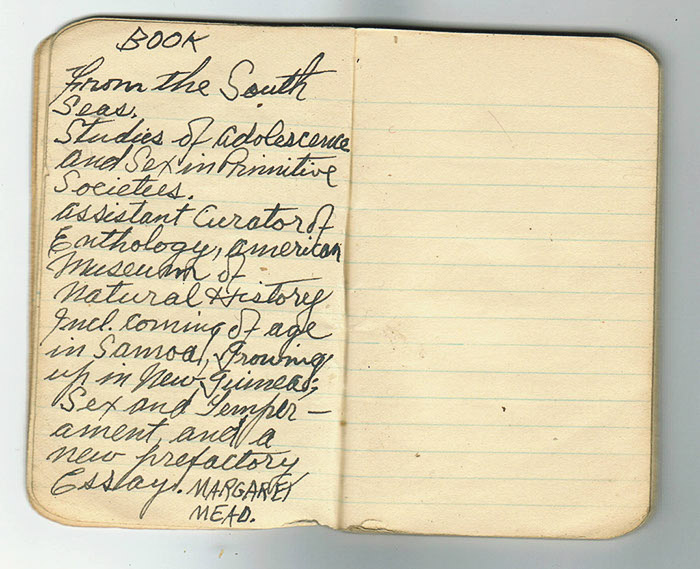 BOOK
From the South
Seas.
Studies of adolescence
and Sex in Primitive
Societies.
assistant Curator of
Enthology, american
Museum of
Natural History
Incl. coming of age
in Samoa, Growing
up in New Guinea;
Sex and Temper-
ament, and a
new prefactory
Essay. MARGARET
MEAD.